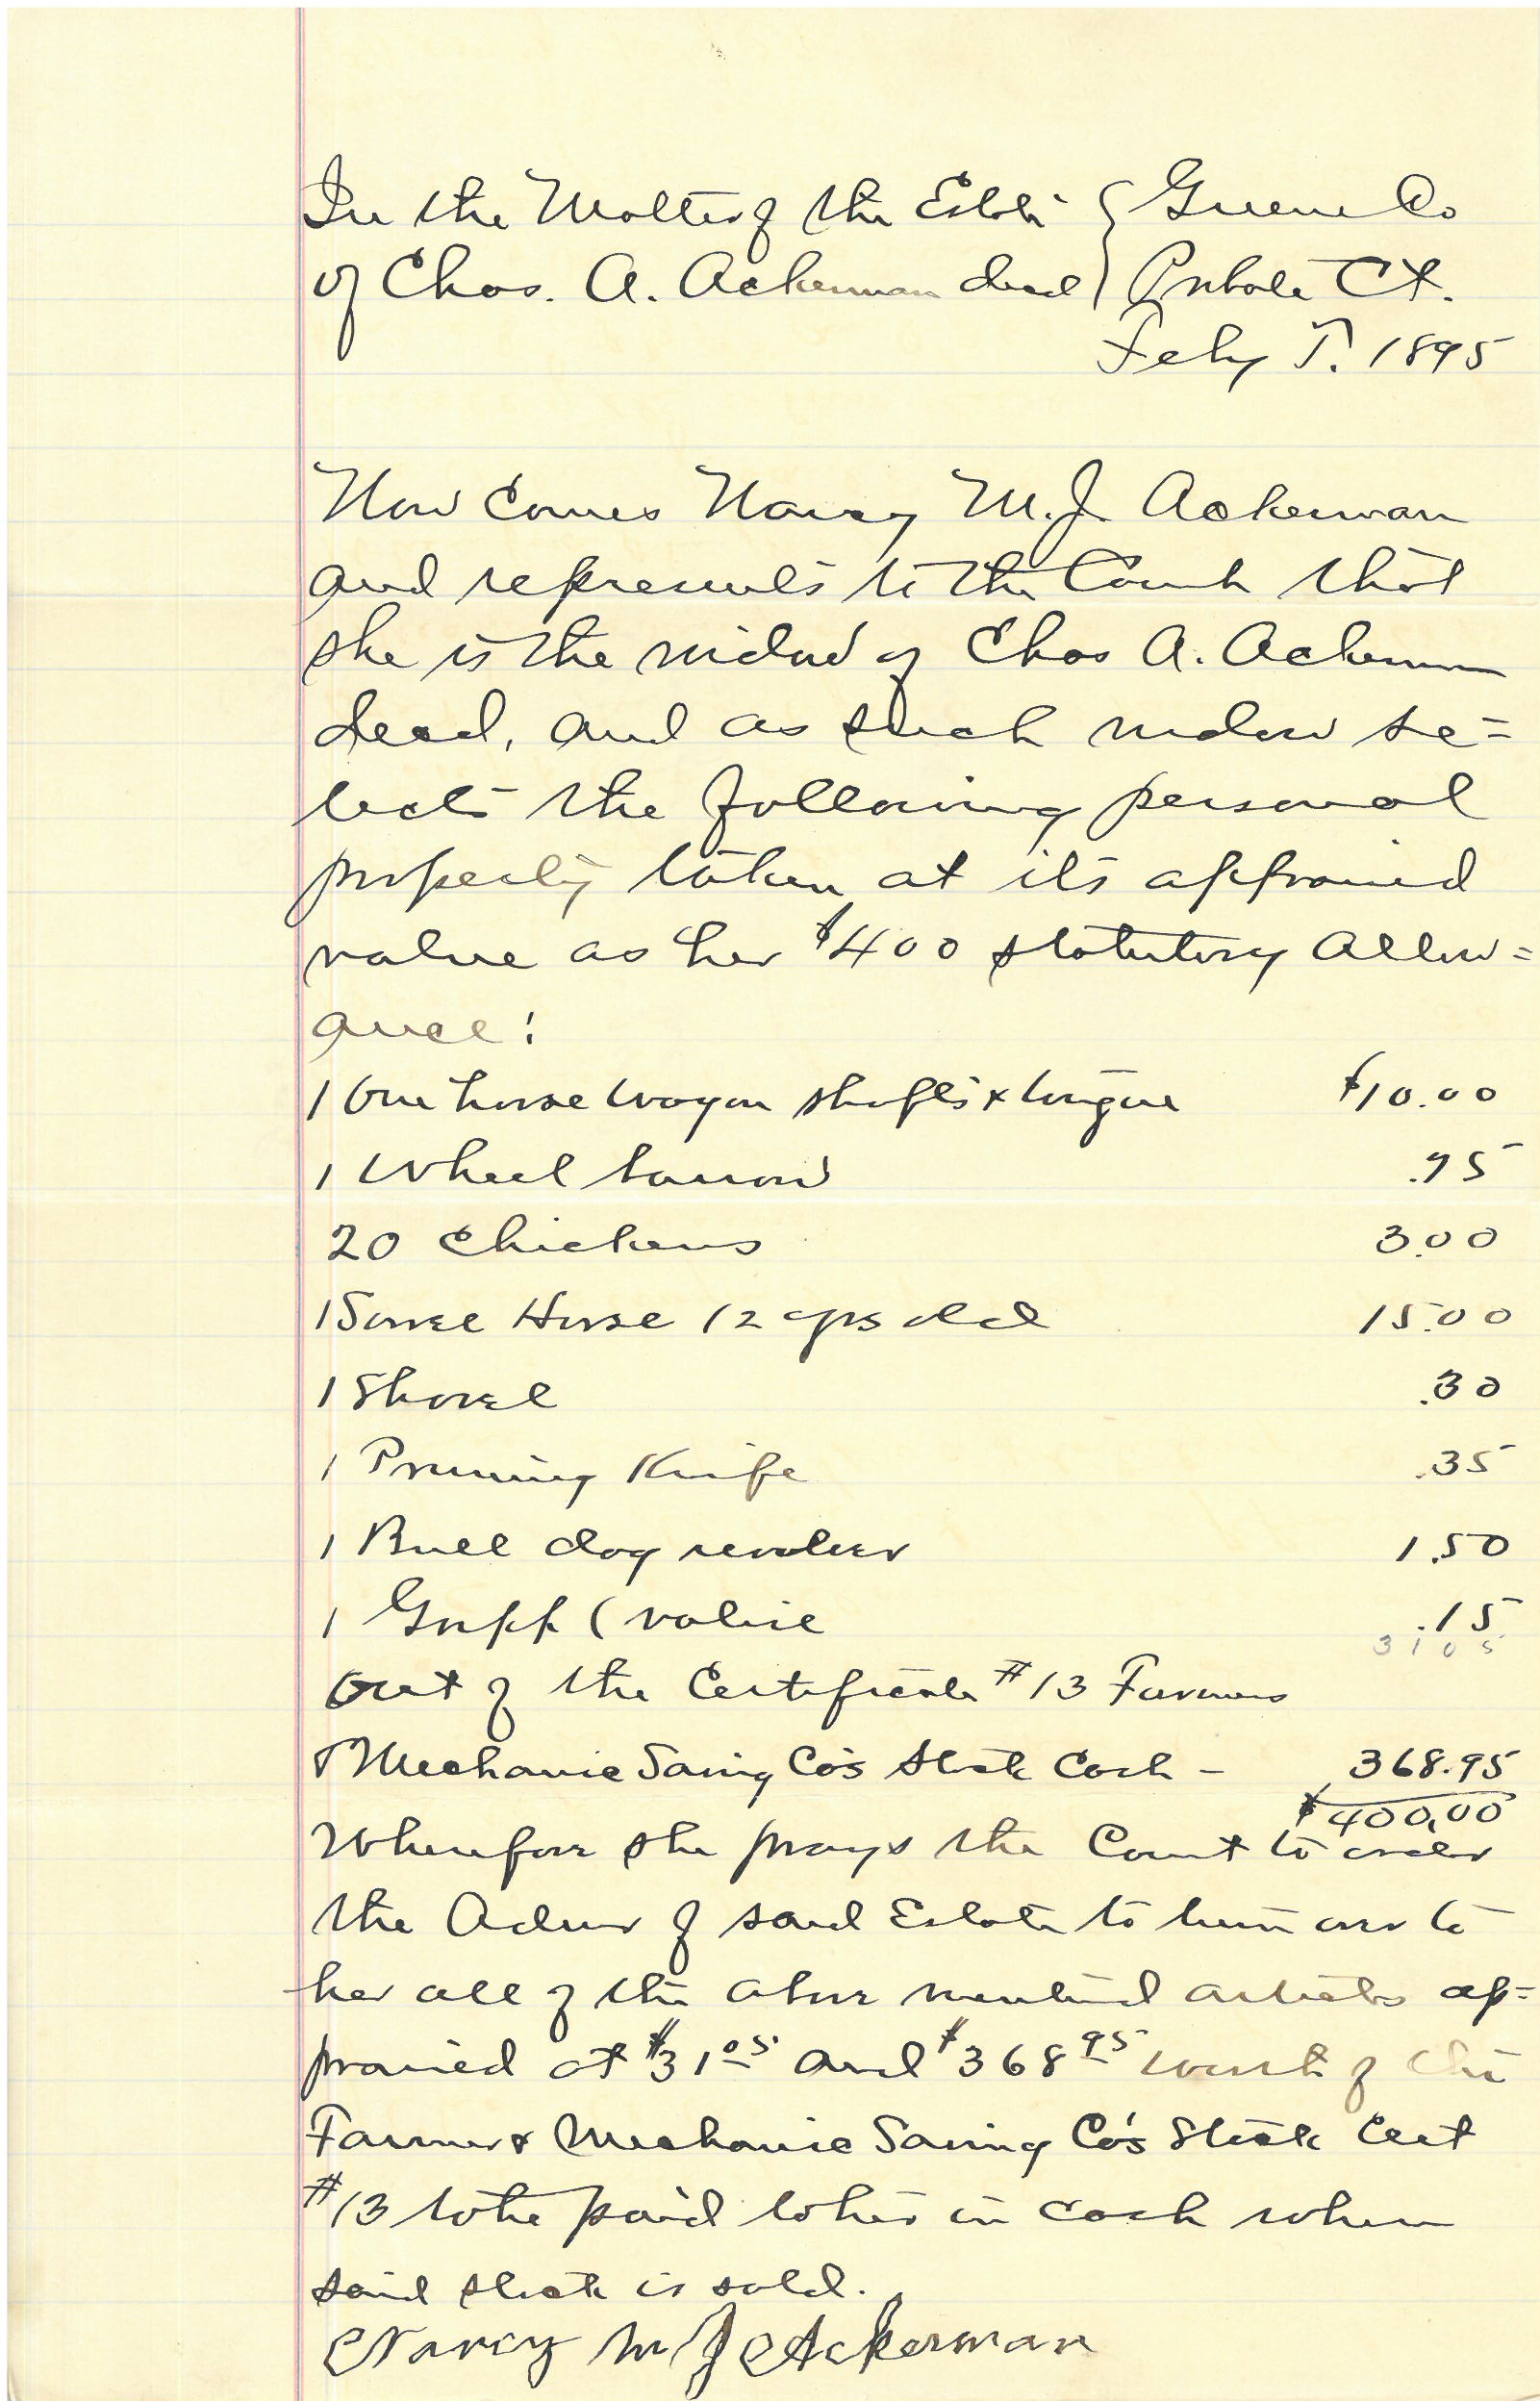 In the Matter of the Estate } Greene Co
of Chas. A. Ackerman decd } Probate Ct.
Feby T. 1895
Now comes Nancy M.J. Ackerman
and represents to the Court that
she is the widow of Chas A. Ackerman
decd, and as such widow se=
lects the following personal
property taken at its appraised
value as her $400 statutory allow=
ance:
1 One horse wagon shafts & tongue $10.00
1 Wheel barrow .75
20 Chickens 3.00
1 Sorrel Horse 12 yrs old 15.00
1 Shovel .30
1 Pruning Knife .35
1 Bull dog revolver 1.50
1 Gripp (valise .15
3105
Out of the Certificate #13 Farmers
& Mechanic Saving Co's Stock Cash - 368.95
$400.00
Wherefore she prays the Court to order
the Admr of said Estate to turn over to
her all of the above mentioned articles ap=
praised at $31 05 and $368 95 worth of the
Farmer & Mechanic Saving Co's Stock Cert
#13 to be paid to her in cash when
said stock is sold.
Nancy M J Ackerman